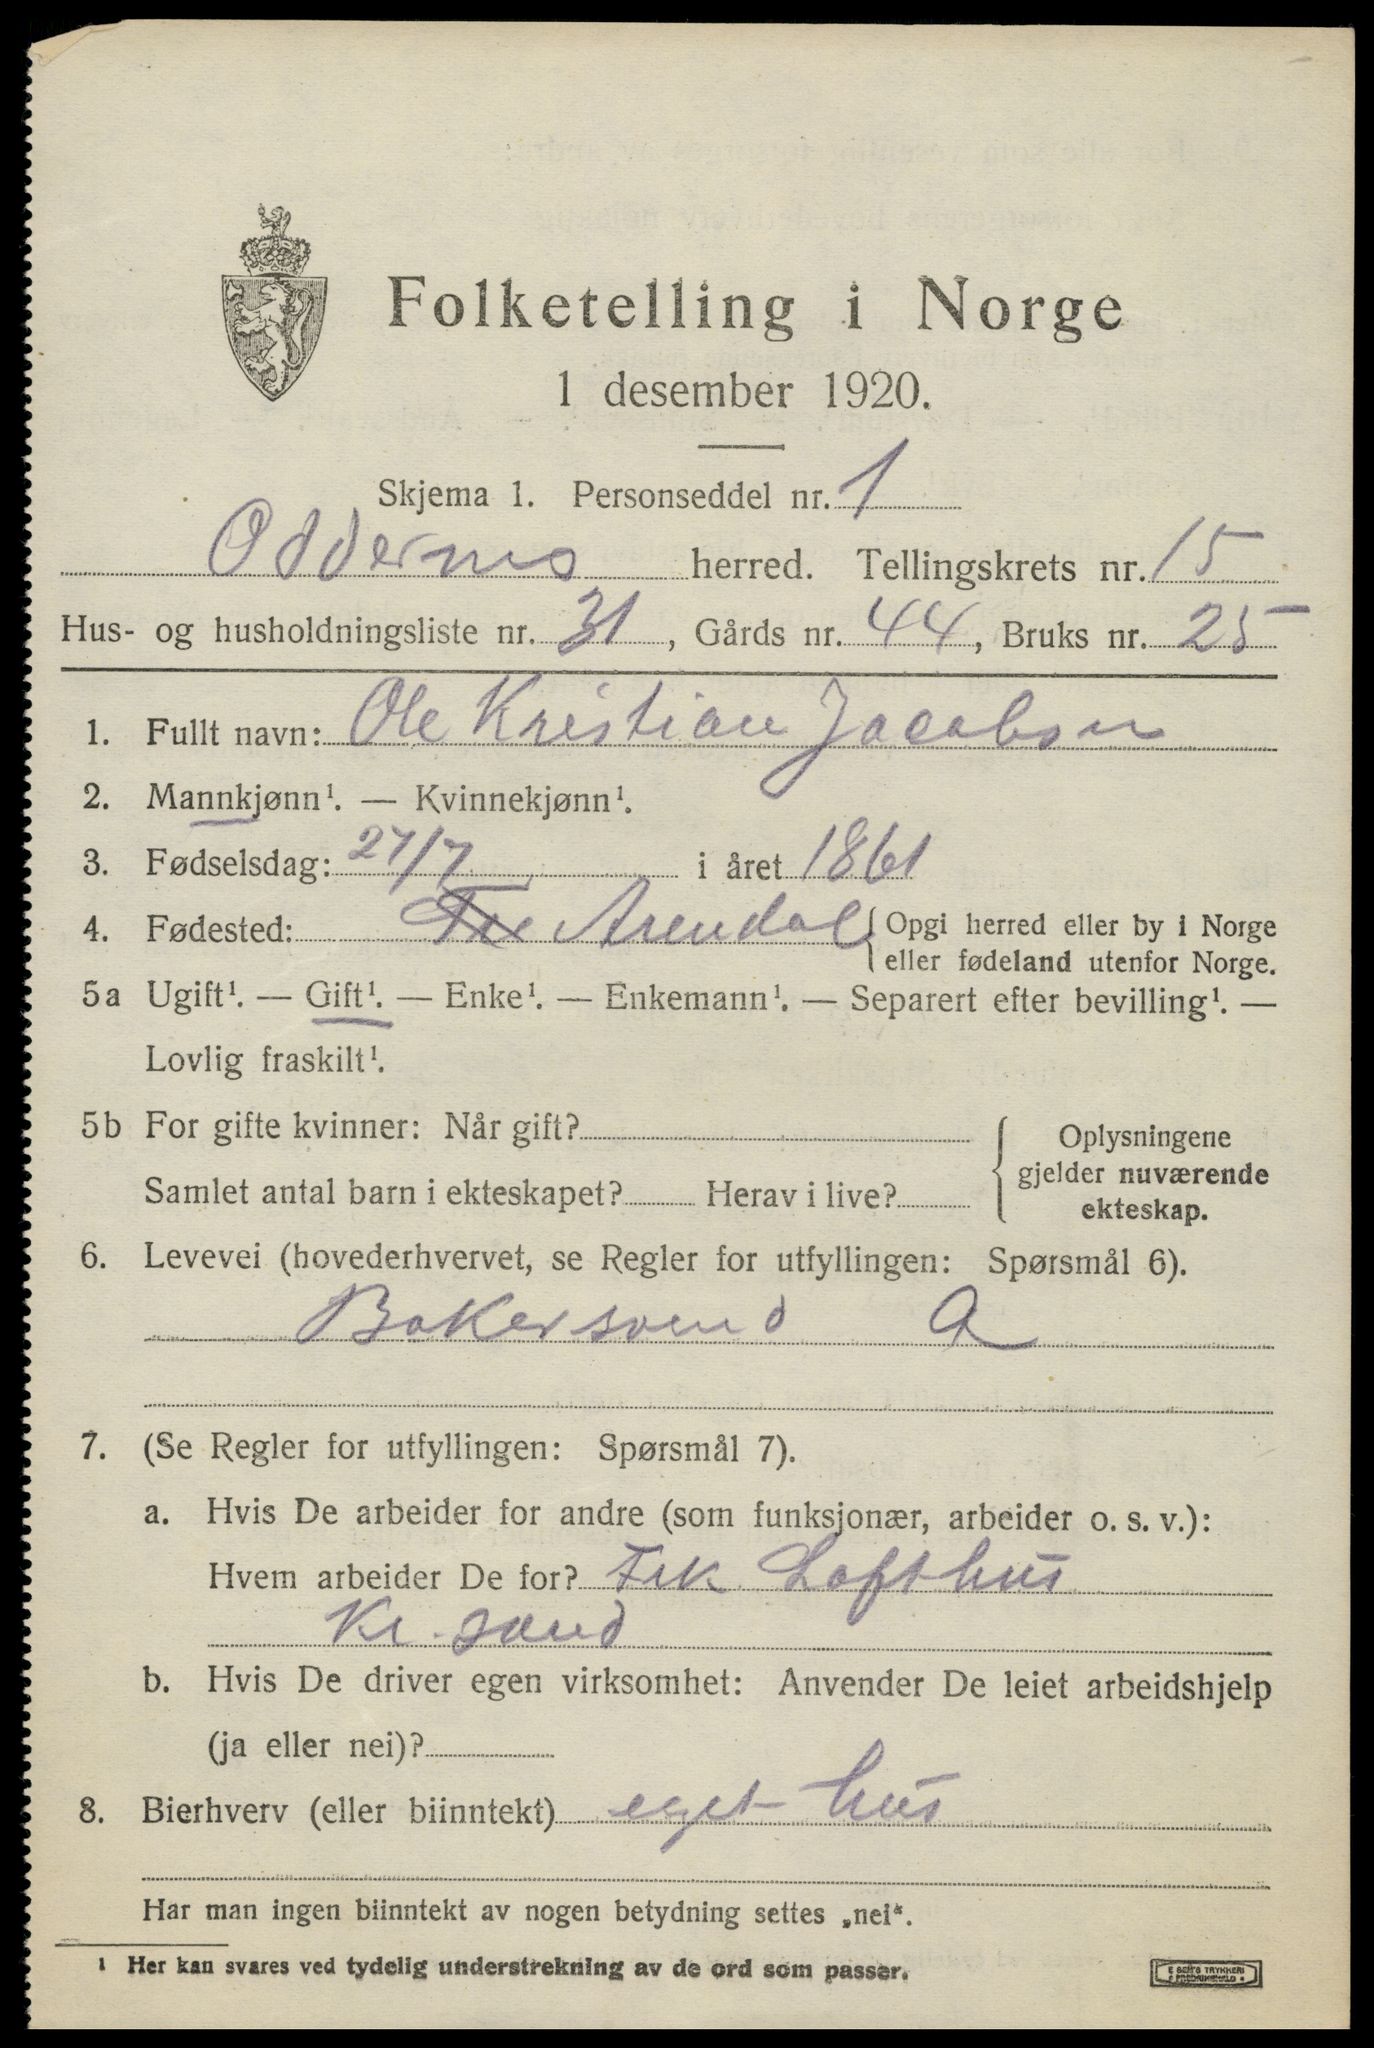 Folketelling i Norge
1 desember 1920.
Skjema 1. Personseddel nr. 1
Oddernes herred. Tellingskrets nr. 15
Hus- og husholdningsliste nr. 31, Gårds nr. 44, Bruks nr. 25
1. Fullt navn: Ole Kristian Jacobsen
2. Mannkjønn¹. — Kvinnekjønn¹.
3. Fødselsdag: 27/7 i året 1861
4. Fødested: Arendal { Opgi herred eller by i Norge
eller fødeland utenfor Norge.
5a Ugift¹. — Gift¹. — Enke¹. — Enkemann¹. — Separert efter bevilling¹. —
Lovlig fraskilt¹.
5b For gifte kvinner: Når gift?
Samlet antal barn i ekteskapet? Herav i live?
Oplysningene
gjelder nuværende
ekteskap.
6. Levevei (hovederhvervet, se Regler for utfyllingen: Spørsmål 6).
Bakersvend a
7. (Se Regler for utfyllingen: Spørsmål 7).
a. Hvis De arbeider for andre (som funksjonær, arbeider o. s. v.):
Hvem arbeider De for? Frk Lofthus
Kr. sand
b. Hvis De driver egen virksomhet: Anvender De leiet arbeidshjelp
(ja eller nei)?
8. Bierhverv (eller biinntekt) eget hus
Har man ingen biinntekt av nogen betydning settes „nei“.
¹ Her kan svares ved tydelig understrekning av de ord som passer.